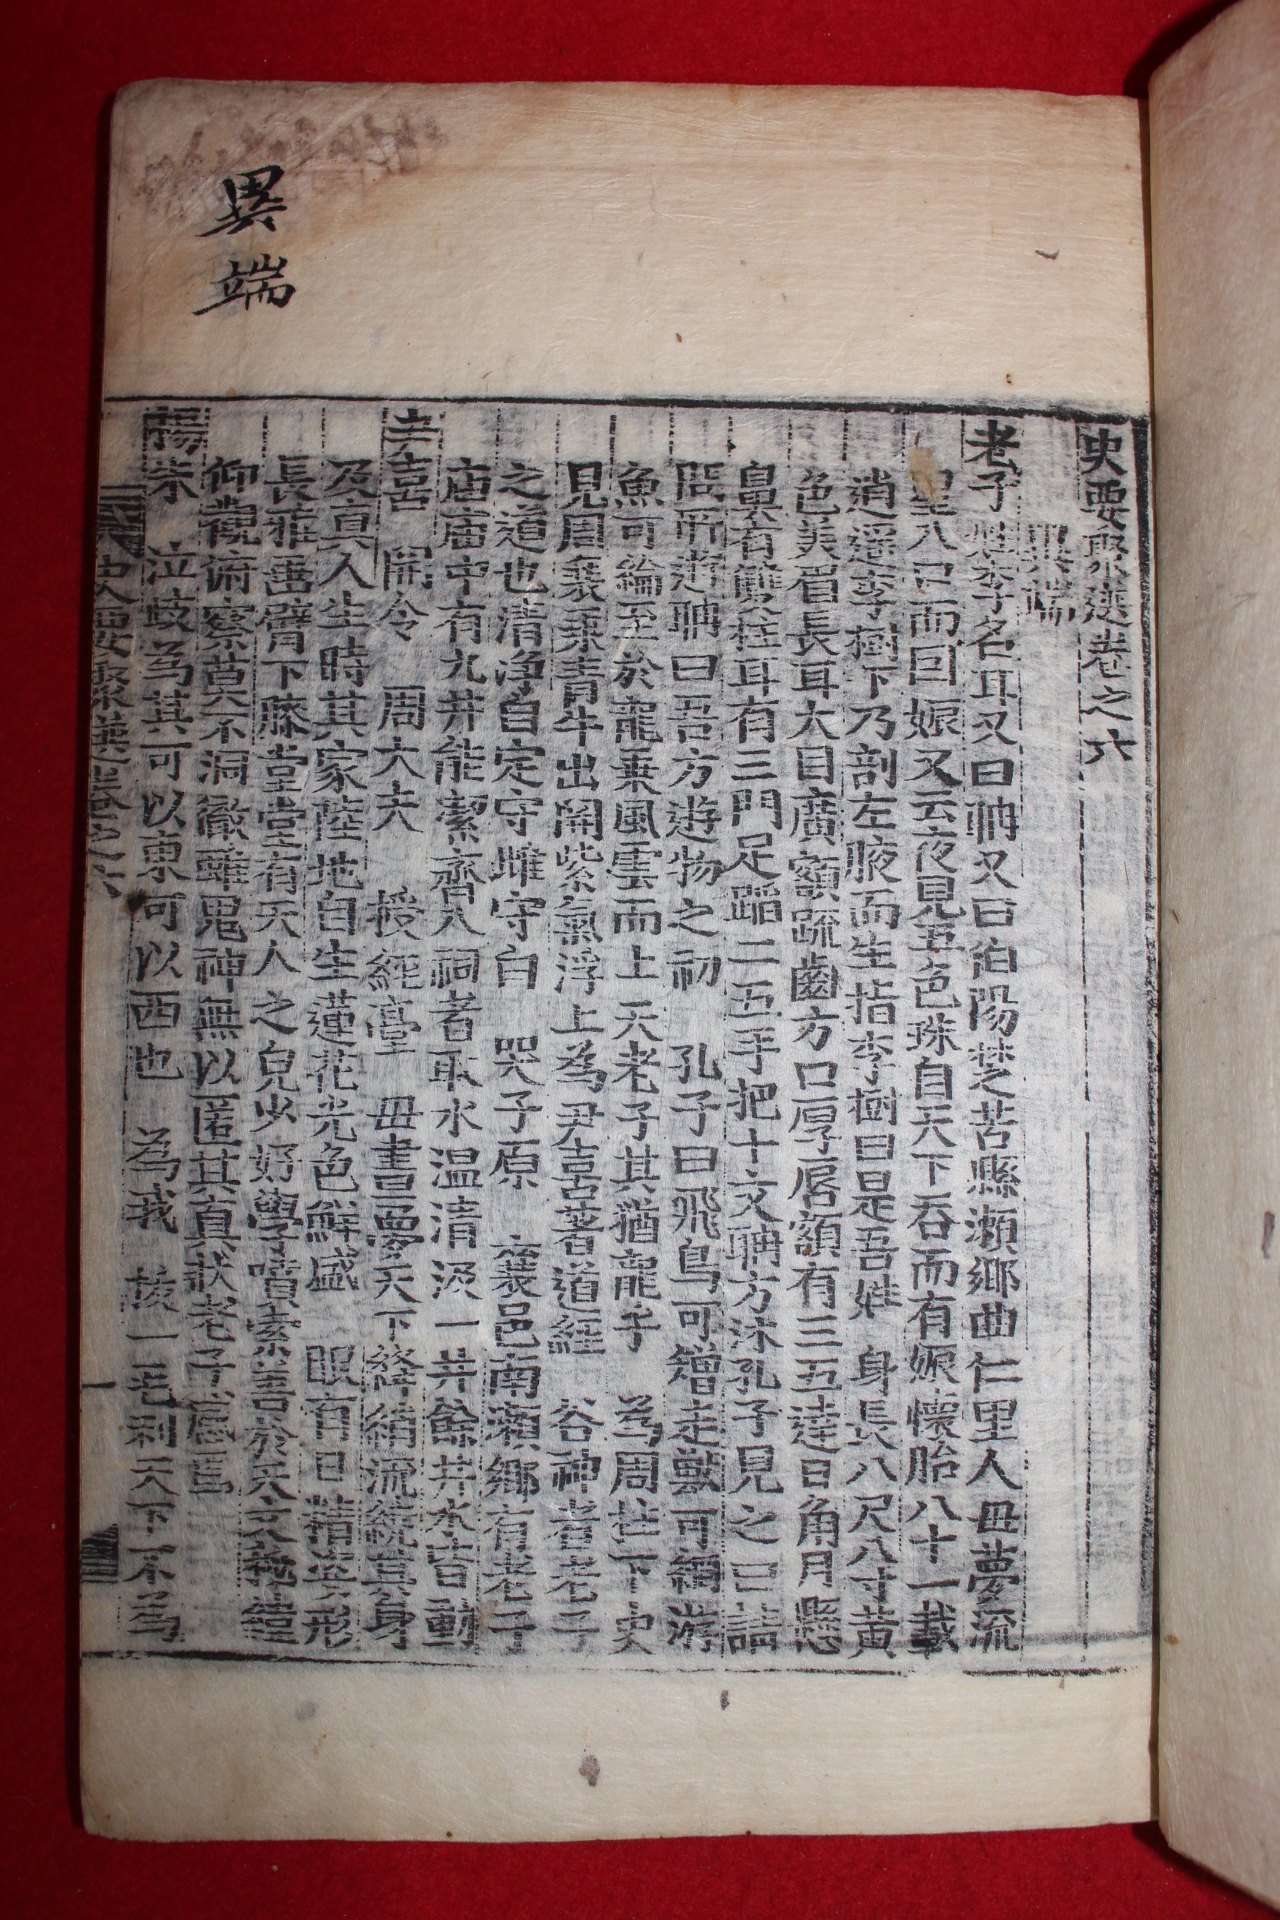 異端
史要聚選卷之六
異端
老子姓李名耳又曰聃又曰伯陽楚之苦縣瀬鄉曲仁里人毋夢流
星入口而囙娠又云夜見五色珠自天下吞而有娠懷胎八十一載
逍遥李樹下乃剖左腋而生指李樹曰是吾姓 身長八尺八寸黃
色美眉長耳大目廣額疏齒方口厚唇額有三五達日角月懸
鼻有雙柱耳有三門足蹈二五手把十文聃方沐孔子見之已請
聃曰吾方遊物之初 孔子曰飛鳥可矰走獸可網游
魚可綸至於龍乗風雲而上天老子其猶龍乎 爲周柱下史
見周衰乗青牛出關紫氣浮上爲尹喜著道經 谷神者老子
之道也清浄自定守雌守白 哭子原 襄邑南瀬鄉有老子
庙庙中有九井能潔齊入祠者取水温清汲一井餘井水皆動
尹喜 開令 周大夫 授經臺 毋晝夢天下絳綃流繞其身
及眞人生時其家陸地自生蓮花光色鮮盛 眼有日精姿形
長雅垂臂下膝堂堂有天人之皃少好學墳索善於天文秘緯
仰觀俯察莫不洞徹雖鬼神無以匿其眞状老子感焉
楊朱 泣歧爲其可以東可以西也 爲我 拔一毛利天下不爲
史要聚選卷之六
一